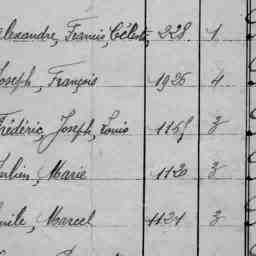 Alexandre, Francis, Céleste, 228. 1
Joseph, François 1926 4
Frédéric, Joseph, Louis 1157 3
Julien, Marie 1120 3
Emile, Marcel 1121 3